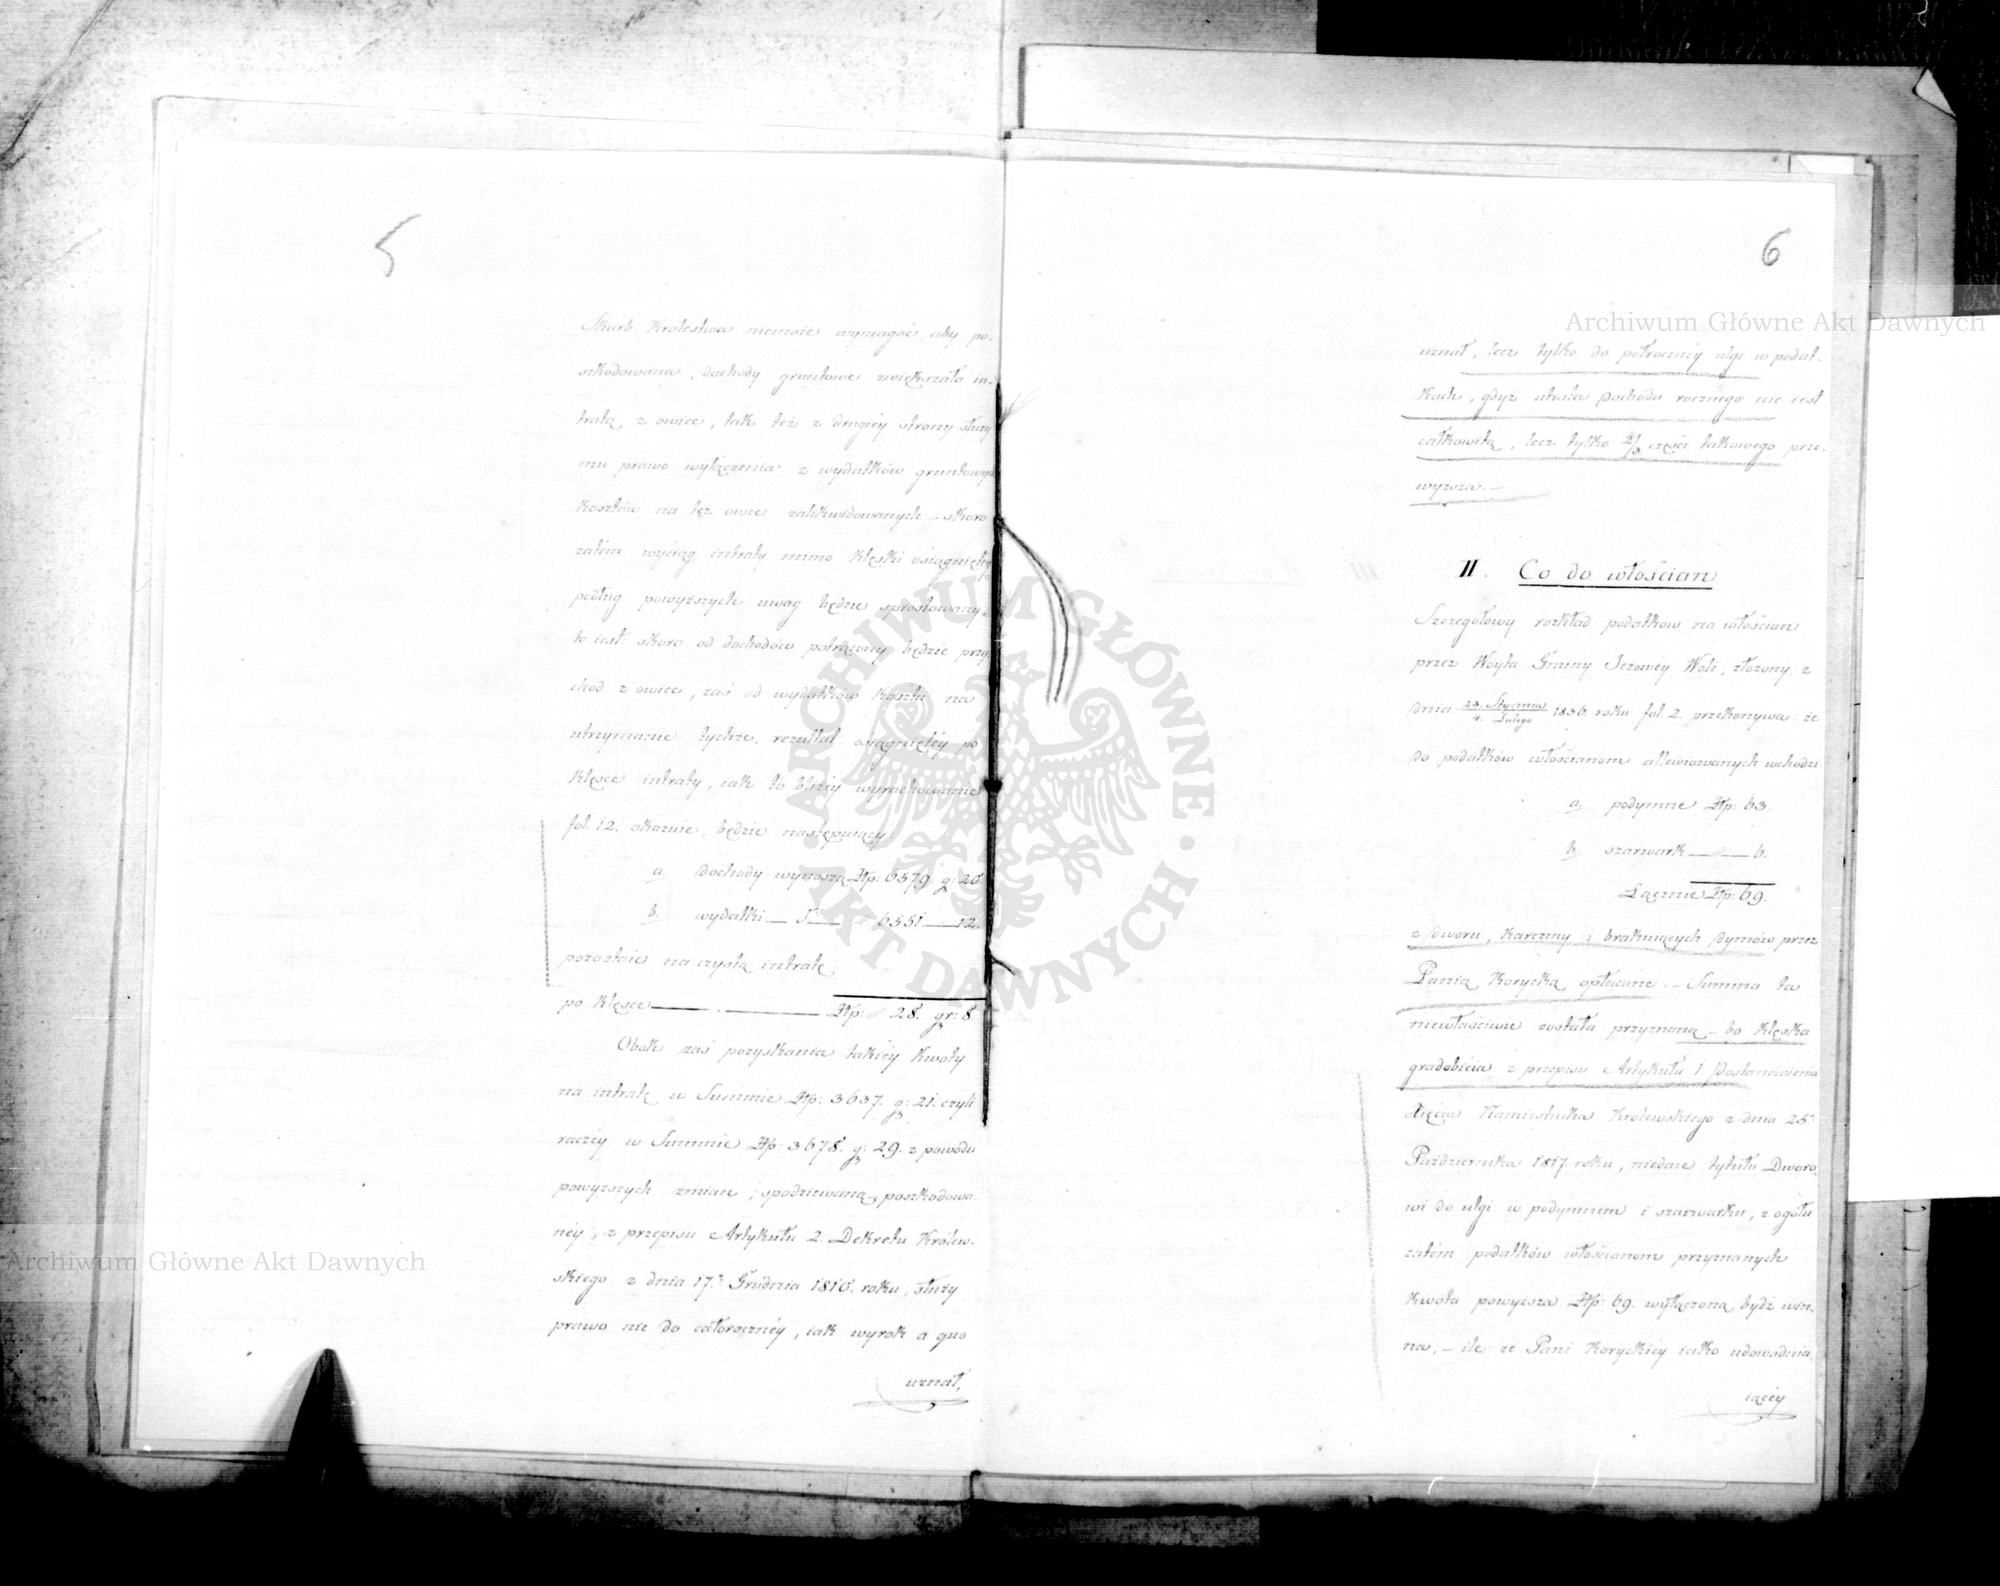 5
Skarb Królestwa niemoże wymagać, aby po-
szkodowana, dochody gruntowe zwiększała in-
tratą z owiec, tak też z drugiéy strony służy
mu prawo wyłączenia z wydatków gruntowych
kosztów na też owce zalikwidowanych – skoro
zatém wyciąg intraty mimo klęski osiągniętéy
podług powyższych uwag będzie sprostowany,
to iest: skoro od dochodów potrącony będzie przy-
chód z owiec, zaś od wydatków koszta na
utrzymanie tychże, rezultat osiągniętéy po
klęsce intraty, iak to bliżéy wyrachowanie
fol. 12. okazuie, będzie następuiący:
a. dochody wynoszą Złp: 6579. g: 20.
b. wydatki — 6551 — 12.
pozostaie na czystą intratę
po klęsce — Złp: 28. gr: 8.
Obok zaś pozyskania takiéy kwoty
na intratę w Summie Złp: 3637. g: 21. czyli
raczéy w Summie Złp: 3678. g: 29. z powodu
powyższych zmian, spodziewaną, poszkodowa-
néy, z przepisu Artykułu 2. Dekretu Królew-
skiego z dnia 17. Grudnia 1810. roku, służy
prawo nie do całorocznéy, iak wyrok a quo
uznał,
6
Archiwum Główne Akt Dawnych
uznał, lecz tylko do półrocznéy ulgi w podat-
kach, gdyż utrata dochodu rocznego nie iest
całkowitą, lecz tylko 2/3 części takowego prze-
wyższa. –
II. Co do włościan
Szczegółowy rozkład podatków na włościan
przez Woyta Gminy Jeżowéy Woli, złożony z
dnia 23. Stycznia / 4. Lutego 1836. roku fol. 2. przekonywa: że
do podatków włościanom allewiowanych wchodzi
a. podymne Złp: 63.
b. szarwark — 6.
Łącznie Złp: 69.
z dworu, karczmy i brakuiących dymów przez
Panią Korycką opłacane. – Summa ta
niewłaściwie została przyznaną – bo klęska
gradobicia z przepisu Artykułu 1. Postanowienia
Xięcia Namiestnika Królewskiego z dnia 25.
Października 1817. roku, niedaie tytułu Dworo-
wi do ulgi w podymnem i szarwarku, z ogółu
zatém podatków włościanom przyznanych
kwota powyższa Złp: 69. wyłączoną bydź win-
na, – ile że Pani Koryckiéy iako udowadnia-
iącéy
Archiwum Główne Akt Dawnych
ARCHIWUM GŁÓWNE · AKT DAWNYCH ·